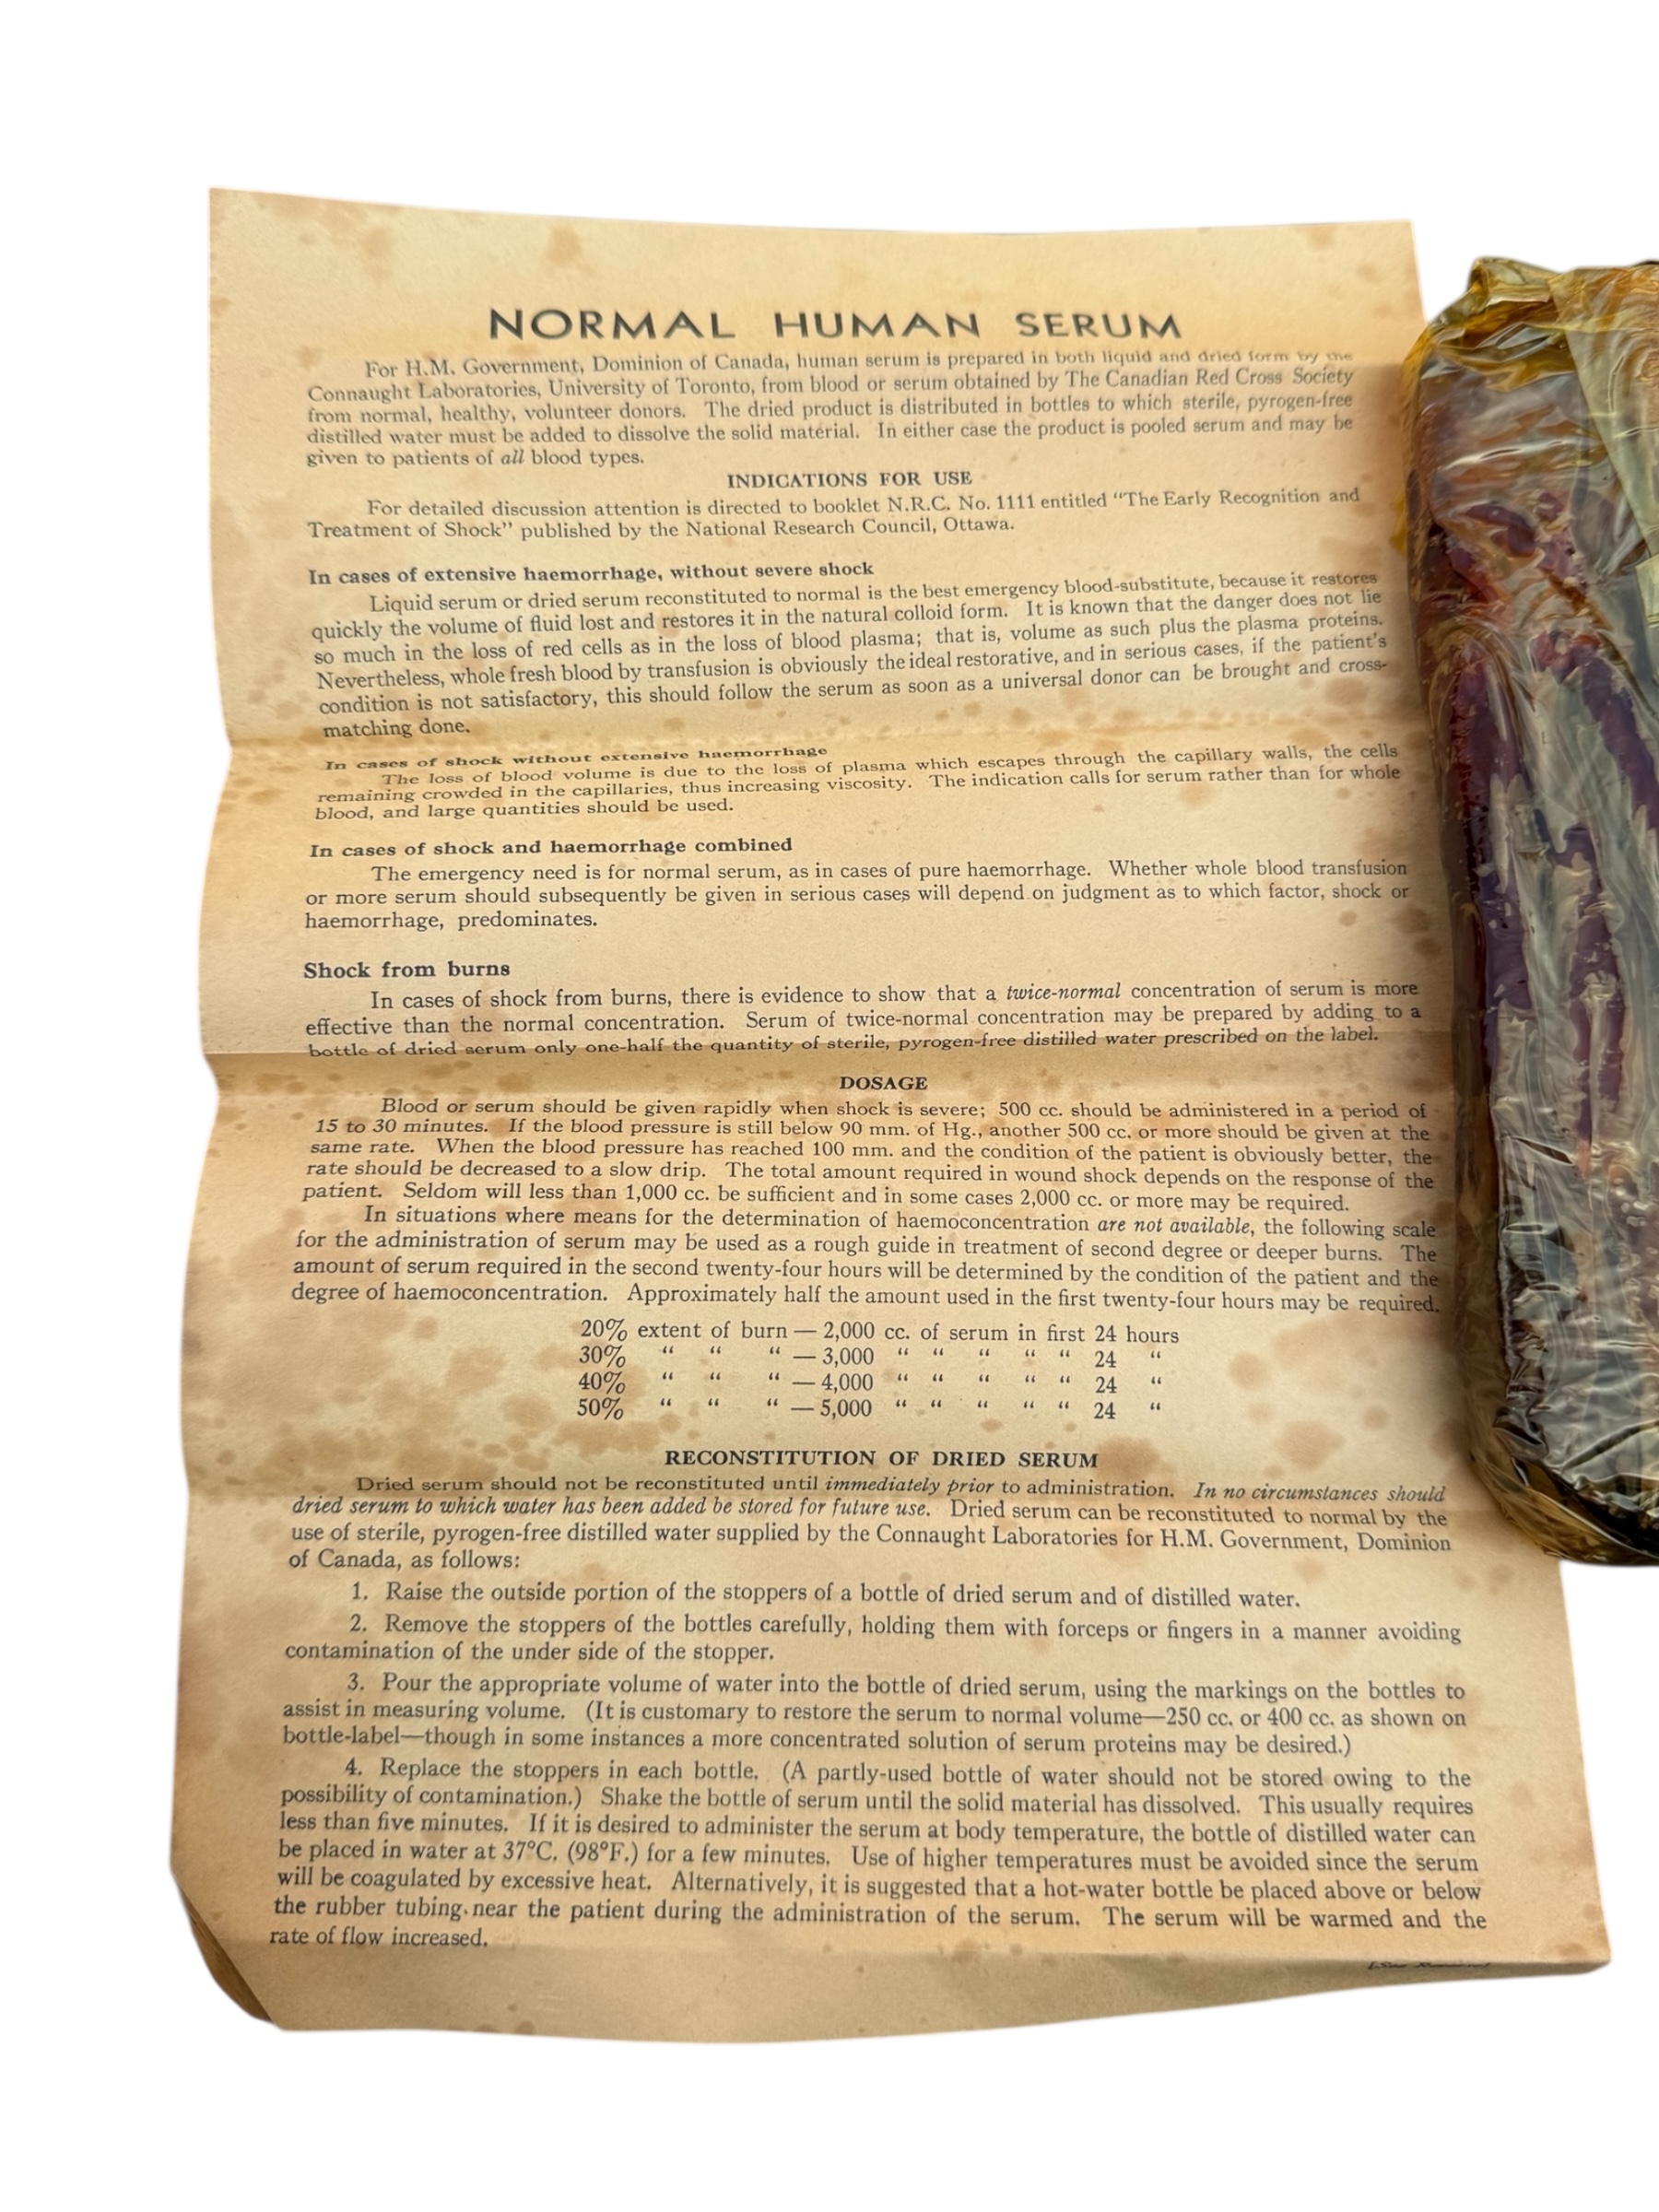 NORMAL HUMAN SERUM
For H.M. Government, Dominion of Canada, human serum is prepared in both liquid and dried form by the
Connaught Laboratories, University of Toronto, from blood or serum obtained by The Canadian Red Cross Society
from normal, healthy, volunteer donors. The dried product is distributed in bottles to which sterile, pyrogen-free
distilled water must be added to dissolve the solid material. In either case the product is pooled serum and may be
given to patients of all blood types.
INDICATIONS FOR USE
For detailed discussion attention is directed to booklet N.R.C. No. 1111 entitled "The Early Recognition and
Treatment of Shock" published by the National Research Council, Ottawa.
In cases of extensive haemorrhage, without severe shock
Liquid serum or dried serum reconstituted to normal is the best emergency blood-substitute, because it restores
quickly the volume of fluid lost and restores it in the natural colloid form. It is known that the danger does not lie
so much in the loss of red cells as in the loss of blood plasma; that is, volume as such plus the plasma proteins.
Nevertheless, whole fresh blood by transfusion is obviously the ideal restorative, and in serious cases, if the patient's
condition is not satisfactory, this should follow the serum as soon as a universal donor can be brought and cross-
matching done.
In cases of shock without extensive haemorrhage
The loss of blood volume is due to the loss of plasma which escapes through the capillary walls, the cells
remaining crowded in the capillaries, thus increasing viscosity. The indication calls for serum rather than for whole
blood, and large quantities should be used.
In cases of shock and haemorrhage combined
The emergency need is for normal serum, as in cases of pure haemorrhage. Whether whole blood transfusion
or more serum should subsequently be given in serious cases will depend on judgment as to which factor, shock or
haemorrhage, predominates.
Shock from burns
In cases of shock from burns, there is evidence to show that a twice-normal concentration of serum is more
effective than the normal concentration. Serum of twice-normal concentration may be prepared by adding to a
bottle of dried serum only one-half the quantity of sterile, pyrogen-free distilled water prescribed on the label.
DOSAGE
Blood or serum should be given rapidly when shock is severe; 500 cc. should be administered in a period of
15 to 30 minutes. If the blood pressure is still below 90 mm. of Hg., another 500 cc. or more should be given at the
same rate. When the blood pressure has reached 100 mm. and the condition of the patient is obviously better, the
rate should be decreased to a slow drip. The total amount required in wound shock depends on the response of the
patient. Seldom will less than 1,000 cc. be sufficient and in some cases 2,000 cc. or more may be required.
In situations where means for the determination of haemoconcentration are not available, the following scale
for the administration of serum may be used as a rough guide in treatment of second degree or deeper burns. The
amount of serum required in the second twenty-four hours will be determined by the condition of the patient and the
degree of haemoconcentration. Approximately half the amount used in the first twenty-four hours may be required.
20% extent of burn — 2,000 cc. of serum in first 24 hours
30% " " " — 3,000 " " " " " 24 "
40% " " " — 4,000 " " " " " 24 "
50% " " " — 5,000 " " " " " 24 "
RECONSTITUTION OF DRIED SERUM
Dried serum should not be reconstituted until immediately prior to administration. In no circumstances should
dried serum to which water has been added be stored for future use. Dried serum can be reconstituted to normal by the
use of sterile, pyrogen-free distilled water supplied by the Connaught Laboratories for H.M. Government, Dominion
of Canada, as follows:
1. Raise the outside portion of the stoppers of a bottle of dried serum and of distilled water.
2. Remove the stoppers of the bottles carefully, holding them with forceps or fingers in a manner avoiding
contamination of the under side of the stopper.
3. Pour the appropriate volume of water into the bottle of dried serum, using the markings on the bottles to
assist in measuring volume. (It is customary to restore the serum to normal volume—250 cc. or 400 cc. as shown on
bottle-label—though in some instances a more concentrated solution of serum proteins may be desired.)
4. Replace the stoppers in each bottle. (A partly-used bottle of water should not be stored owing to the
possibility of contamination.) Shake the bottle of serum until the solid material has dissolved. This usually requires
less than five minutes. If it is desired to administer the serum at body temperature, the bottle of distilled water can
be placed in water at 37°C. (98°F.) for a few minutes. Use of higher temperatures must be avoided since the serum
will be coagulated by excessive heat. Alternatively, it is suggested that a hot-water bottle be placed above or below
the rubber tubing near the patient during the administration of the serum. The serum will be warmed and the
rate of flow increased.